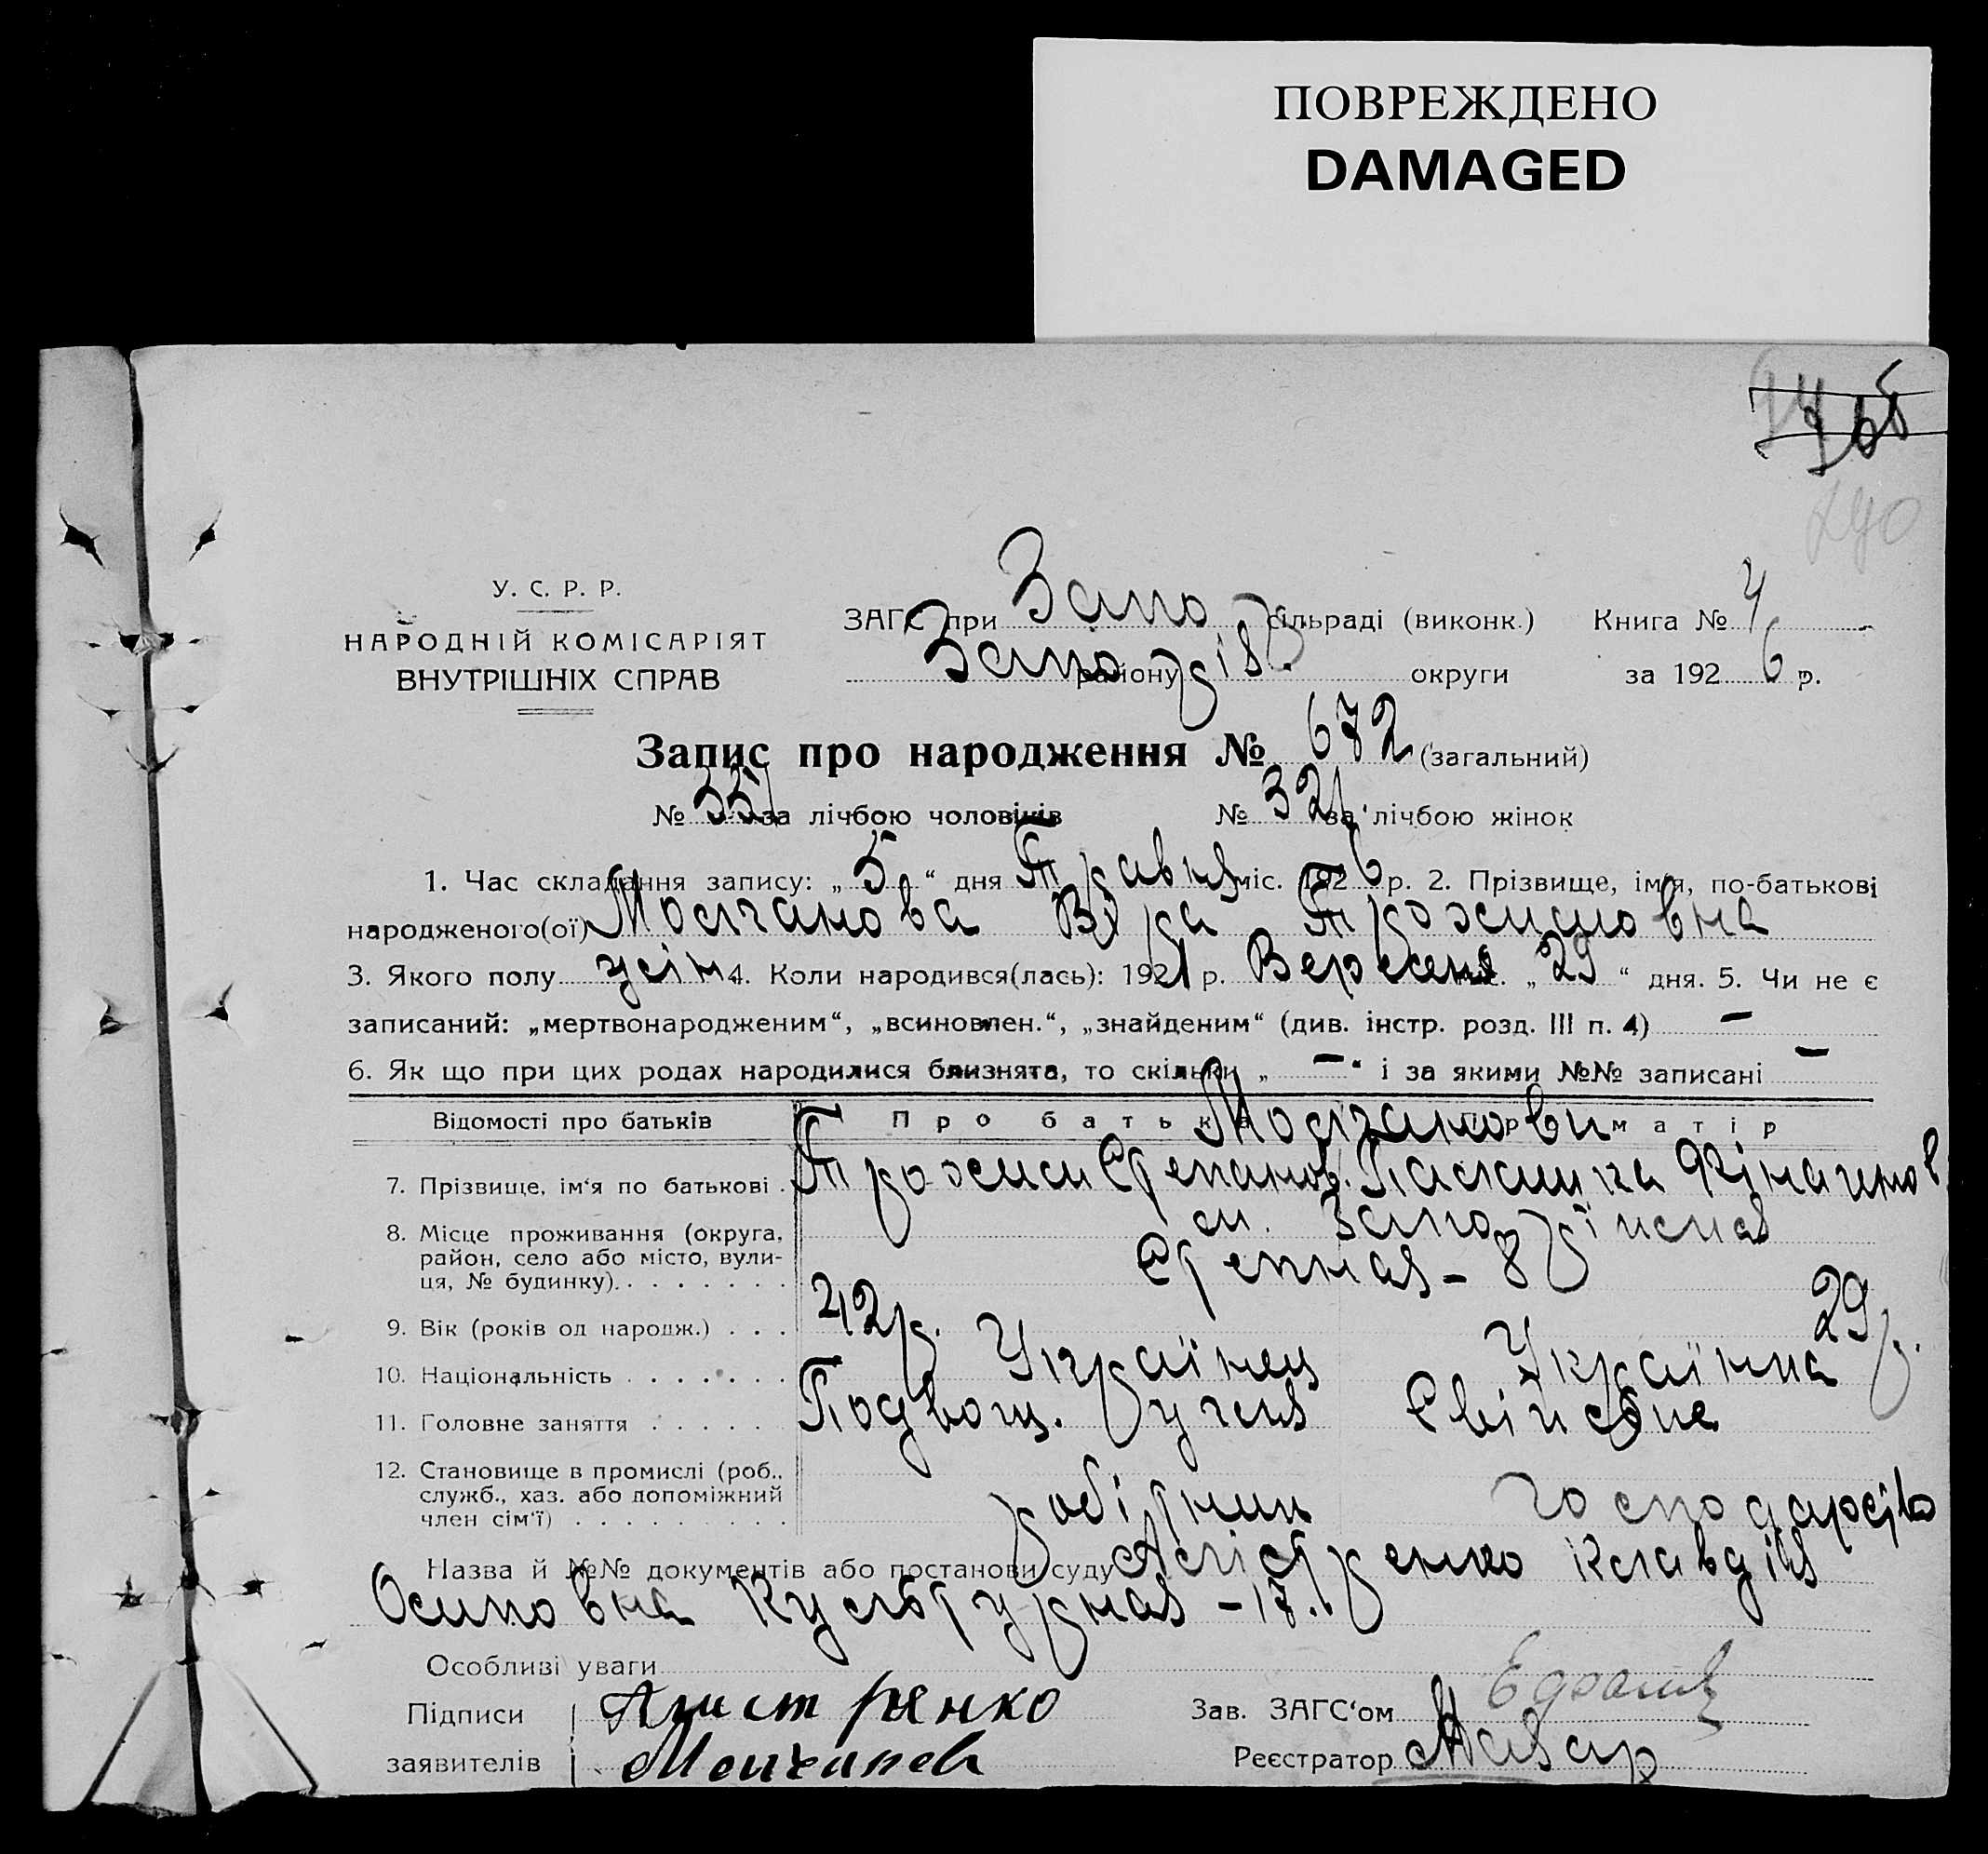 ПОВРЕЖДЕНО
DAMAGED
240
У. С. Р. Р.
НАРОДНІЙ КОМІСАРІЯТ
ВНУТРІШНІХ СПРАВ
ЗАГС при Запо сільраді (виконк.) Книга № 4
Запоріз. району округи за 1926 р.
Запис про народження № 672 (загальний)
№ 351 за лічбою чоловіків № 321 за лічбою жінок
1. Час складання запису: „ 5 “ дня Травня міс. 1926 р. 2. Прізвище, ім'я, по-батькові
народженого(ої) Молчанова Віра Трохимовна
3. Якого полу жін. 4. Коли народився(лась): 1921 р. Вересеня міс. „ 29 “ дня. 5. Чи не є
записаний: „мертвонародженим“, „всиновлен.“, „знайденим“ (див. інстр. розд. III п. 4) –
6. Як що при цих родах народилися близнята, то скільки „ – “ і за якими №№ записані –
Відомості про батьків Про батька Про матір
Молчанови
7. Прізвище, ім'я по батькові . Трохим Степанов. Палашка
8. Місце проживання (округа, м. Запоріжжя
район, село або місто, вули- Степная – 8
ця, № будинку). . . . . . . .
9. Вік (років од народж.) . . . 42 р. 29 р.
10. Національність . . . . . . . Українец Українка
11. Головне заняття . . . . . . Подвощ. Свійське
12. Становище в промислі (роб.,
служб., хаз. або допоміжний робітник господарство
член сім'ї) . . . . . . . . .
Назва й №№ документів або постанови суду Алістренко Клавдія
Осиповна Культурная – 17.
Особливі уваги
Підписи Алистренко Зав. ЗАГС'ом
заявителів Молчанов Реєстратор